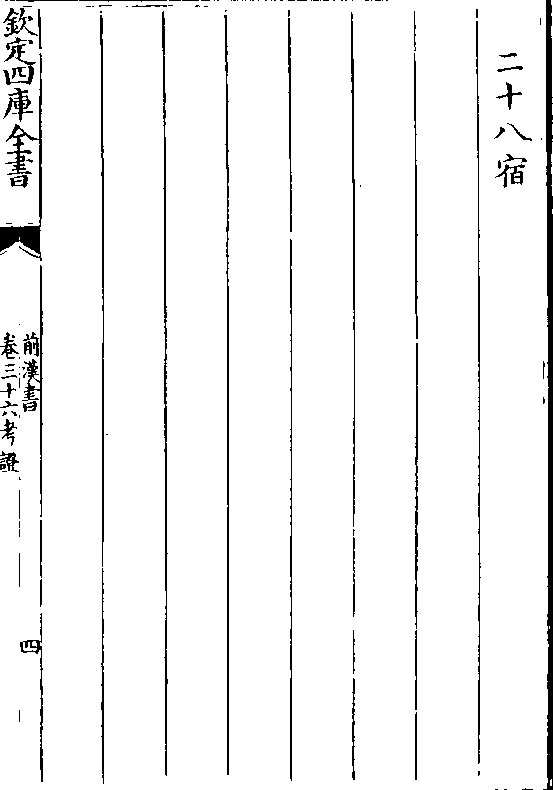 二十八宿
欽定四庫全書
前漢書
卷三十六考證
四